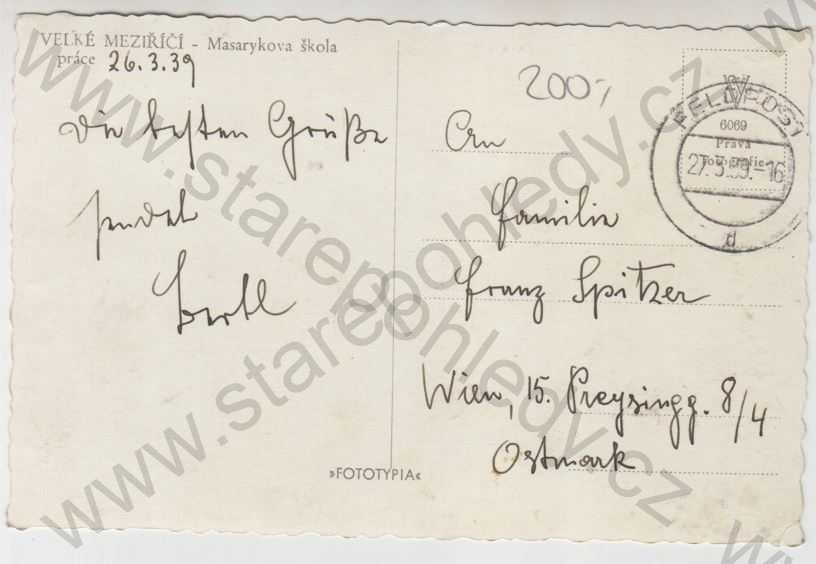 VELKÉ MEZIŘÍČÍ - Masarykova škola
práce 26.3.39
Die besten Grüße
sendet
Bertl
»FOTOTYPIA«
200,-
6069
Pravá
Fotografie
FELDPOST
27.3.39.-16
d
An
Familie
Franz Spitzer
Wien, 15. Preysingg. 8/4
Ostmark
www.starepohledy.cz